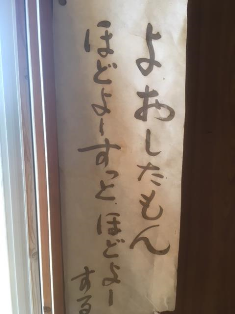 よおしたもん
ほどよーすっと、ほどよー
する